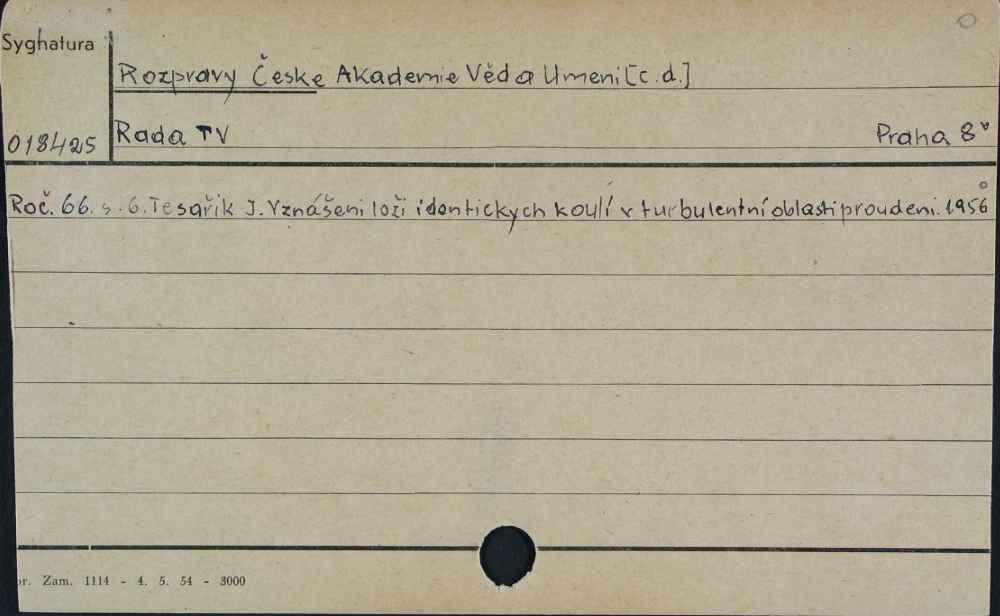 Syghatura
Rozpravy České Akademie Věd a Umeni [c.d.]
018425
Rada TV
Praha 8°
Roč. 66. s. 6. Tesařik J. Vznášeni loži identickych koulí v turbulentní oblasti proudeni. 1956
or. Zam. 1114 - 4. 5. 54 - 3000